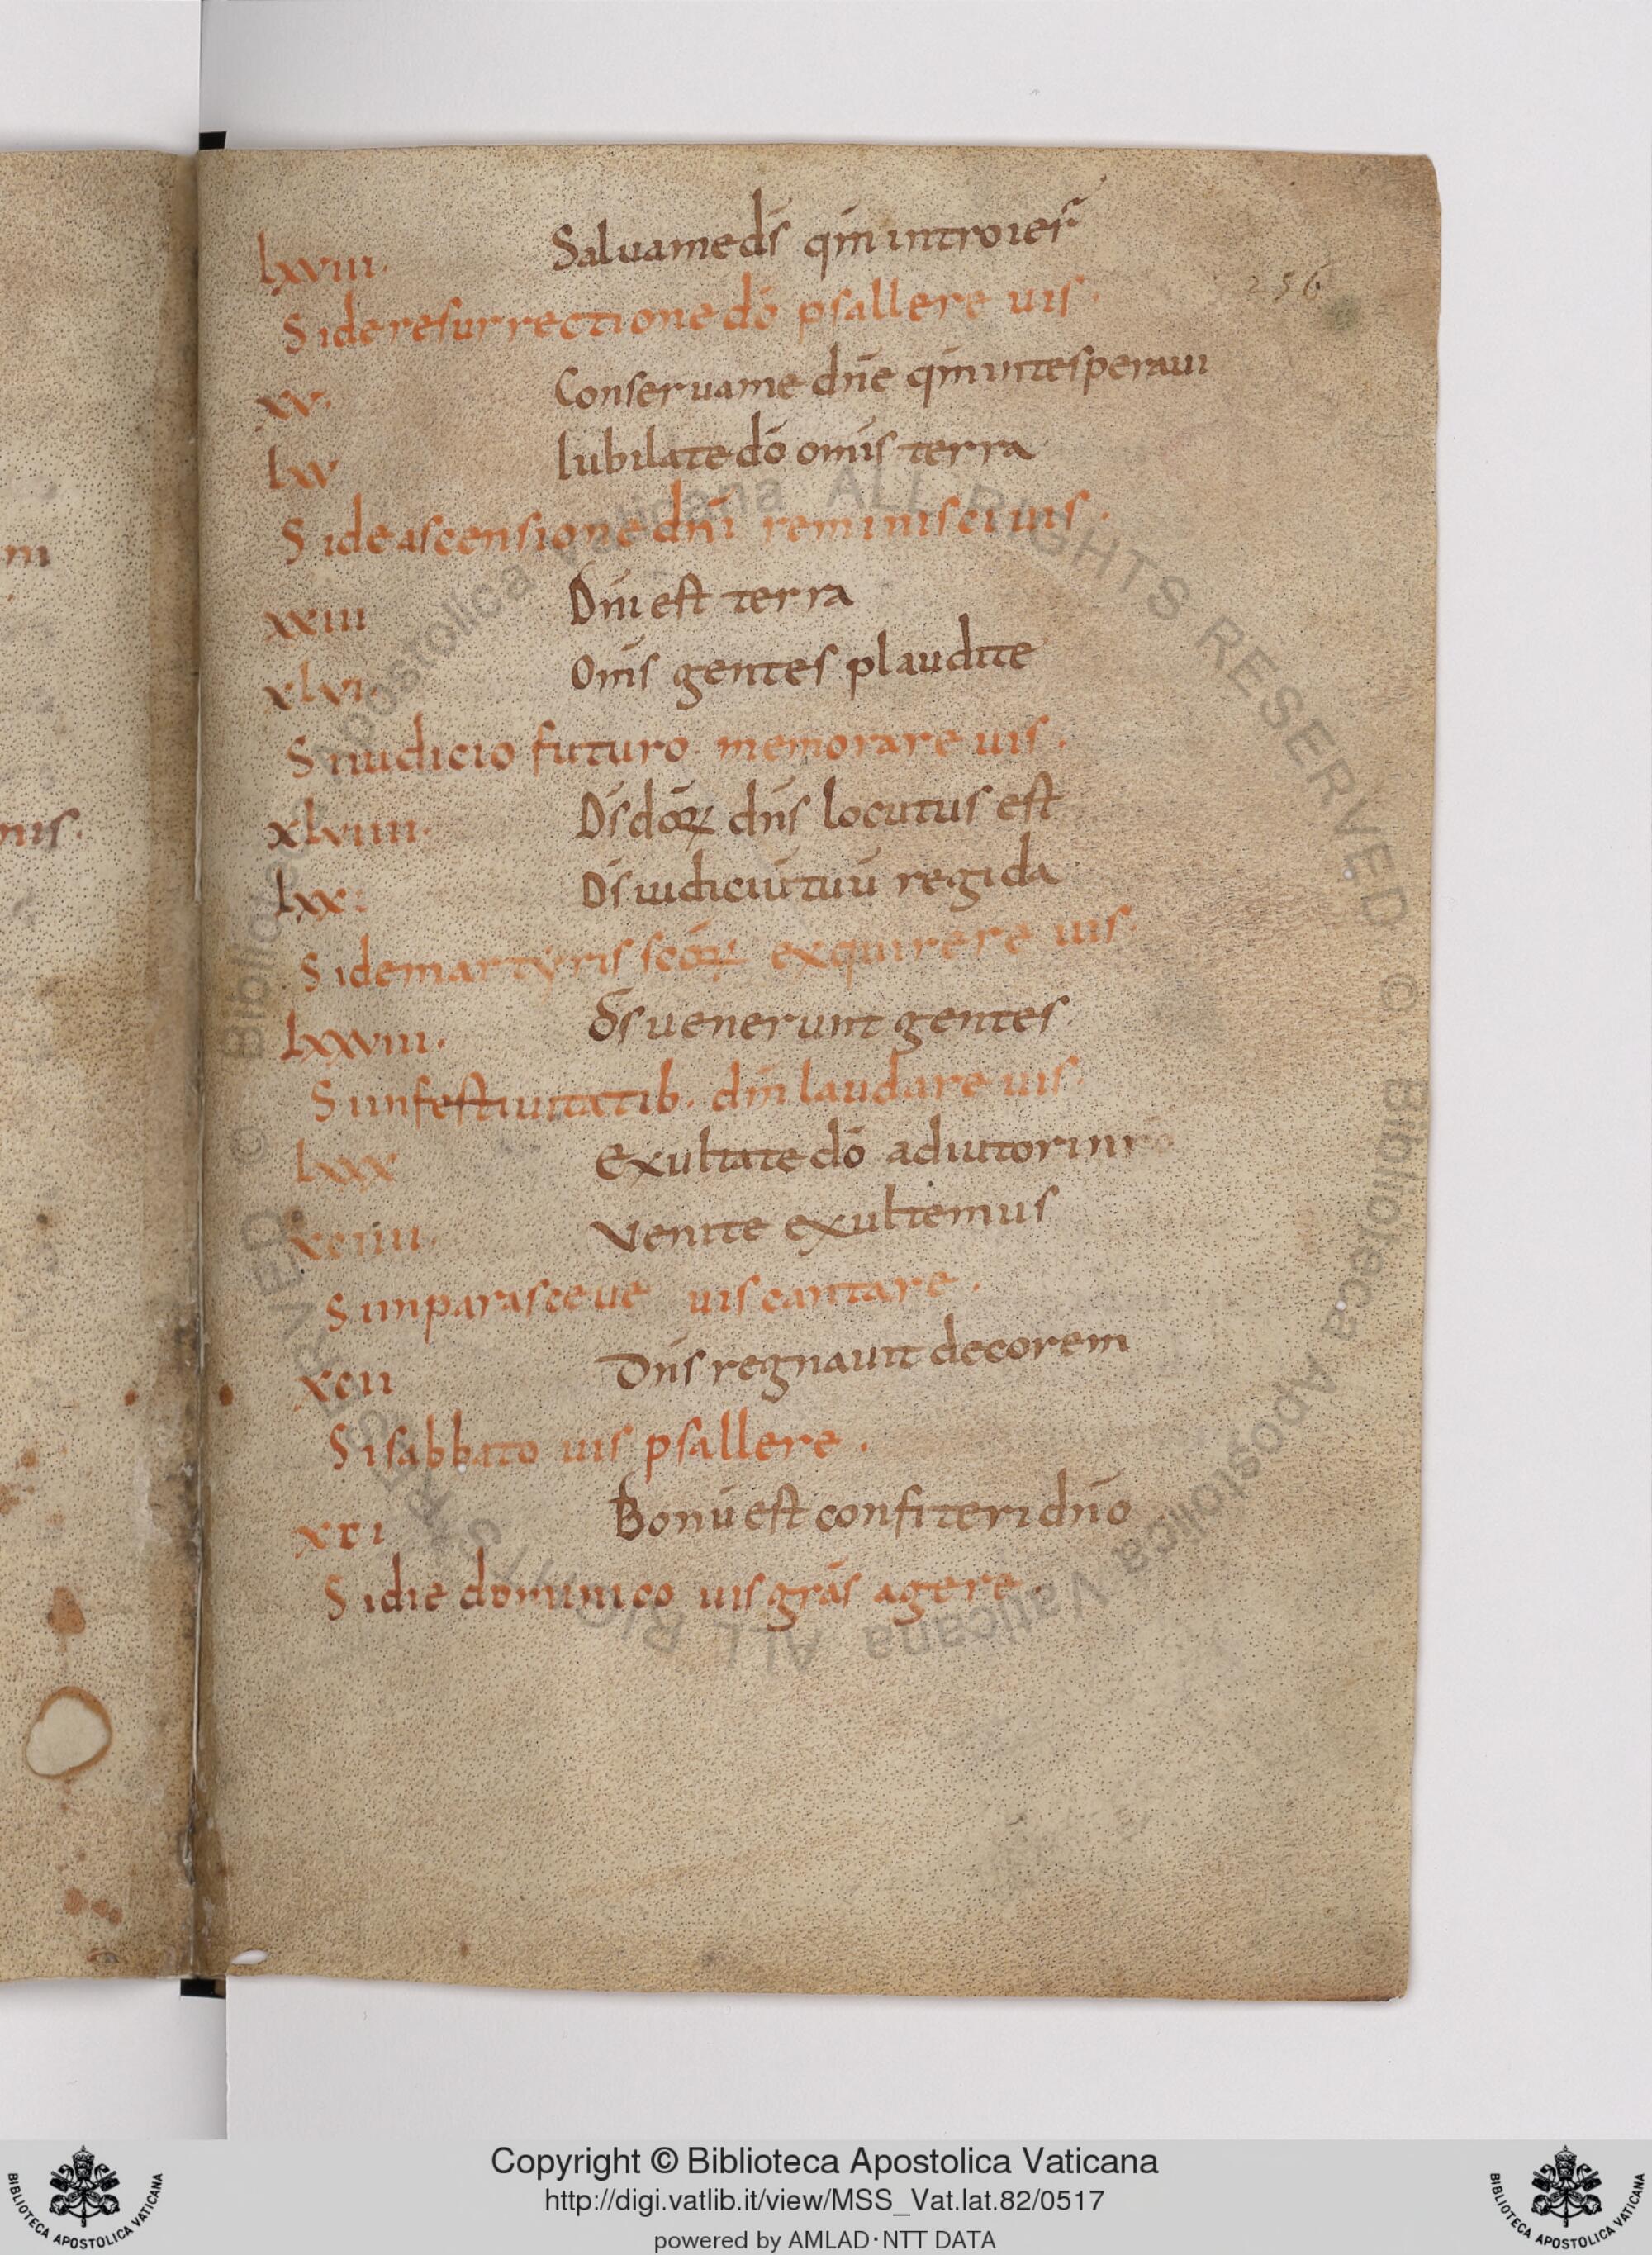 lxviii. Saluame ds̄ qm̄ introier̄
256
Si de resurrectione dō psallere uis.
xv. Conserua me dn̄e qm̄ in te speraui
lxv Iubilate dō om̄is terra
Si de ascensione dn̄i reminisci uis.
xxiii Dn̄i est terra
xlvi. Om̄s gentes plaudite
Si iudicio futuro memorare uis.
xlviiii. Ds̄ dōꝝ dn̄s locutus est
lxx: Ds̄ iudiciū tuū regi da
Si de martyris scōꝝ exquirere uis.
lxxviii. Ds̄ uenerunt gentes
Si in festiuitatib. dn̄i laudare uis.
lxxx Exultate dō adiutori nr̄o
xciiii. Venite exultemus
Si in parasceue uis cantare.
xcii Dn̄s regnauit decorem
Si sabbato uis psallere.
xci Bonū est confiteri dn̄o
Si die dominico uis grās agere.
m
nis.
Biblioteca Apostolica Vaticana ALL RIGHTS RESERVED ©
Biblioteca Apostolica Vaticana ALL RIGHTS RESERVED ©
Copyright © Biblioteca Apostolica Vaticana
http://digi.vatlib.it/view/MSS_Vat.lat.82/0517
powered by AMLAD·NTT DATA
BIBLIOTECA APOSTOLICA VATICANA
BIBLIOTECA APOSTOLICA VATICANA